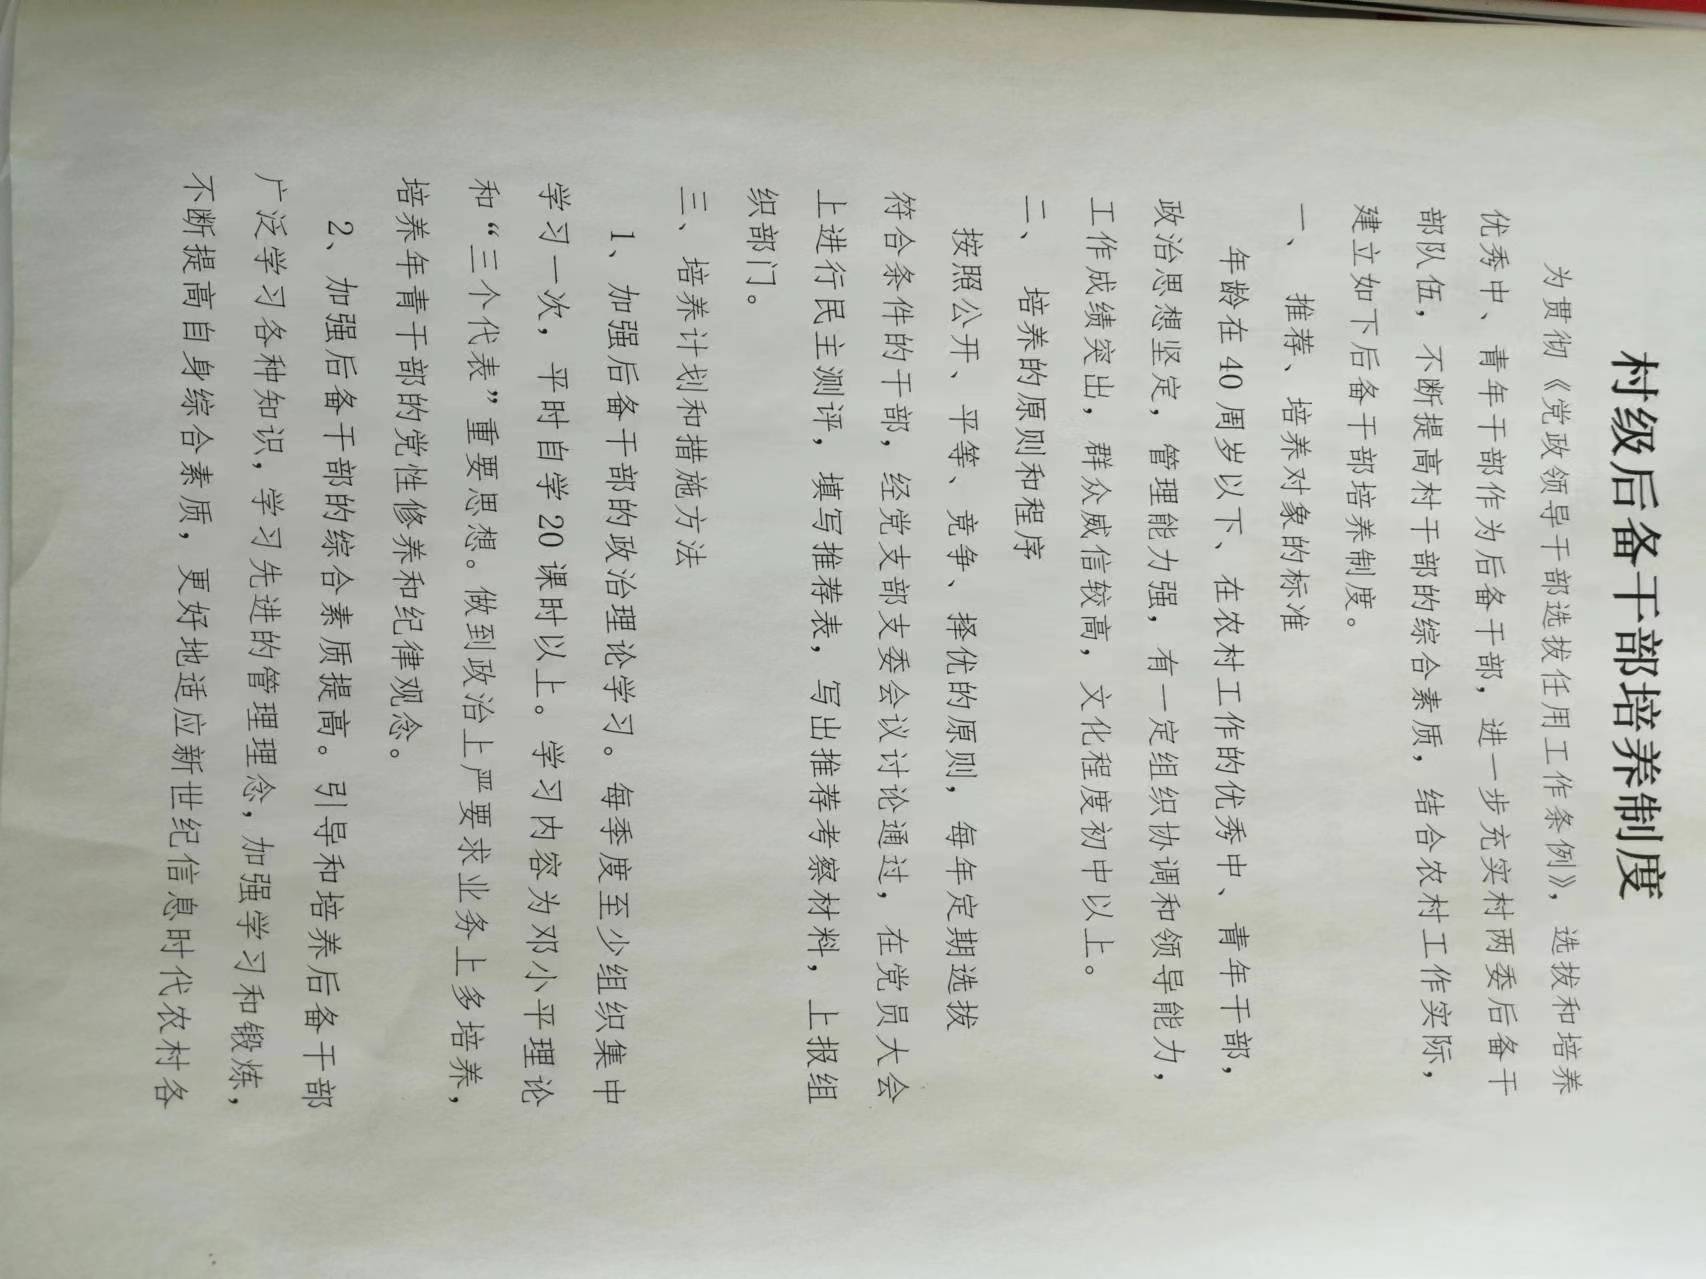 村级后备干部培养制度
为贯彻《党政领导干部选拔任用工作条例》，选拔和培养
优秀中、青年干部作为后备干部，进一步充实村两委后备干
部队伍，不断提高村干部的综合素质，结合农村工作实际，
建立如下后备干部培养制度。
一、推荐、培养对象的标准
年龄在40周岁以下、在农村工作的优秀中、青年干部，
政治思想坚定，管理能力强，有一定组织协调和领导能力，
工作成绩突出，群众威信较高，文化程度初中以上。
二、 培养的原则和程序
按照公开、平等、竞争、择优的原则，每年定期选拔
符合条件的干部，经党支部支委会议讨论通过，在党员大会
上进行民主测评，填写推荐表，写出推荐考察材料，上报组
织部门。
三、培养计划和措施方法
1、加强后备干部的政治理论学习。每季度至少组织集中
学习一次，平时自学20课时以上。学习内容为邓小平理论
和“三个代表”重要思想。做到政治上严要求业务上多培养，
培养年青干部的党性修养和纪律观念。
2、加强后备干部的综合素质提高。引导和培养后备干部
广泛学习各种知识，学习先进的管理理念，加强学习和锻炼，
不断提高自身综合素质，更好地适应新世纪信息时代农村各